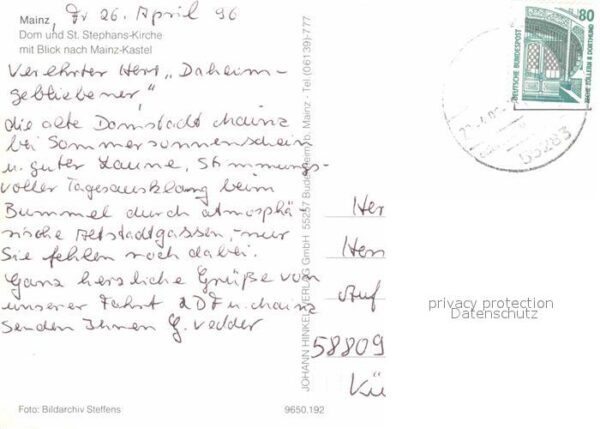 Mainz, Fr 26. April 96
Dom und St. Stephans-Kirche
mit Blick nach Mainz-Kastel
Verehrter Herr „Daheim-
gebliebener“,
die alte Domstadt Mainz
bei Sommersonnenschein
u. guter Laune, Stimmungs-
voller Tagesausklang beim
Bummel durch atmosphä
rische Altstadtgassen, - nur
Sie fehlen noch dabei.
Ganz herzliche Grüße von
unserer Fahrt ZDF u. Mainz
senden Ihnen G. Vedder
Foto: Bildarchiv Steffens
9650.192
JOHANN HINKEL VERLAG GmbH 55257 Budenheim b. Mainz · Tel. (06139)-777
80
DEUTSCHE BUNDESPOST
ZECHE ZOLLERN II DORTMUND
55283
Her
Herr
Auf
58809
privacy protection
Datenschutz